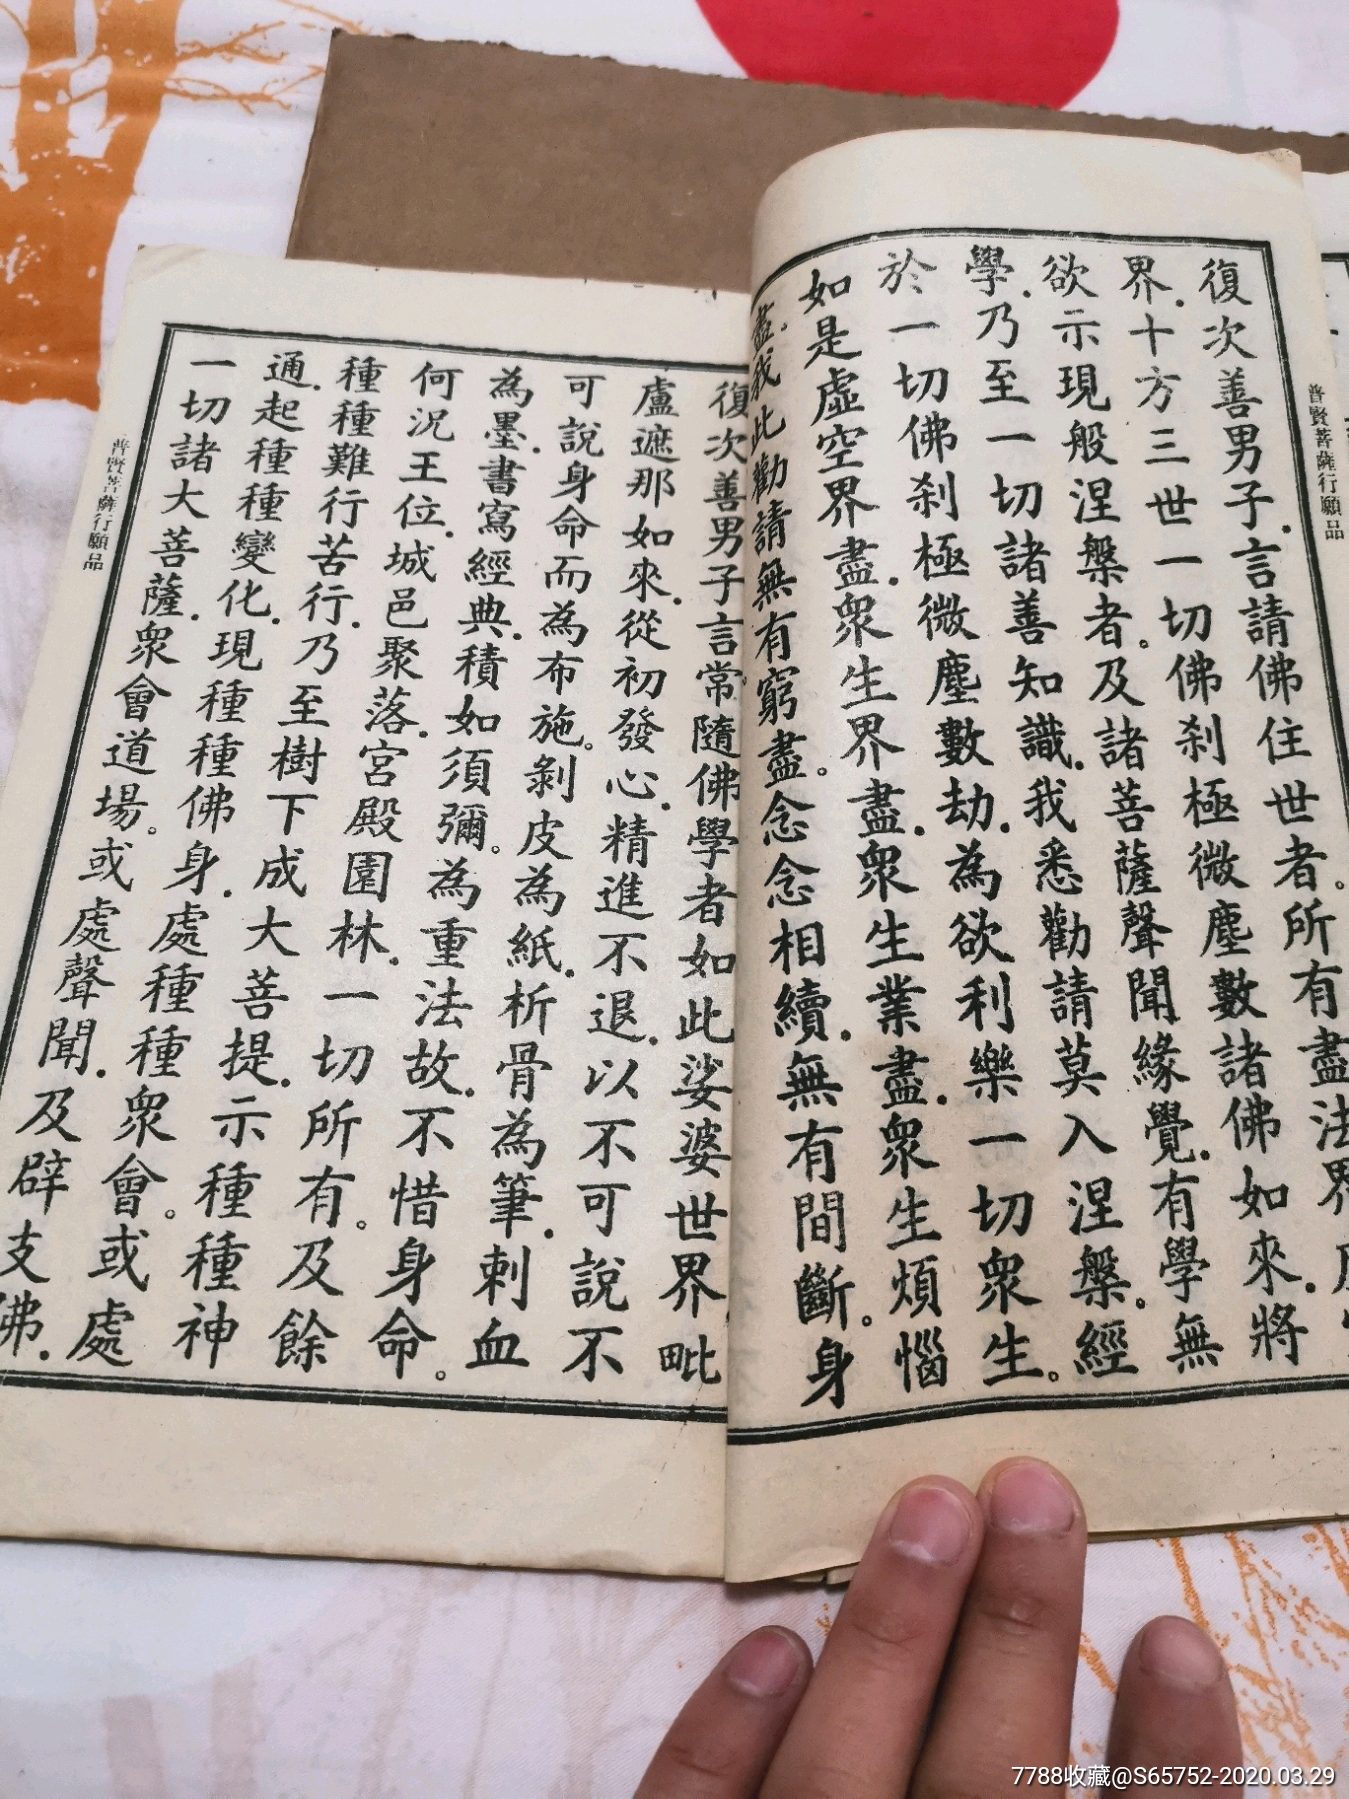 普賢菩薩行願品
復次善男子.言請佛住世者。所有盡法界
界.十方三世一切佛刹極微塵數諸佛如來.將
欲示現般涅槃者。及諸菩薩聲聞緣覺.有學無
學.乃至一切諸善知識.我悉勸請莫入涅槃。經
於一切佛刹極微塵數劫.為欲利樂一切眾生。
如是虛空界盡.眾生界盡.眾生業盡.眾生煩惱
盡.我此勸請無有窮盡。念念相續.無有間斷。身
復次善男子言常隨佛學者如此娑婆世界毗
盧遮那如來.從初發心.精進不退.以不可說不
可說身命而為布施。剝皮為紙.析骨為筆.刺血
為墨.書寫經典.積如須彌。為重法故.不惜身命。
何況王位.城邑聚落.宮殿園林.一切所有。及餘
種種難行苦行.乃至樹下成大菩提.示種種神
通.起種種變化.現種種佛身.處種種眾會。或處
一切諸大菩薩.眾會道場。或處聲聞.及辟支佛.
普賢菩薩行願品
7788收藏@S65752-2020.03.29